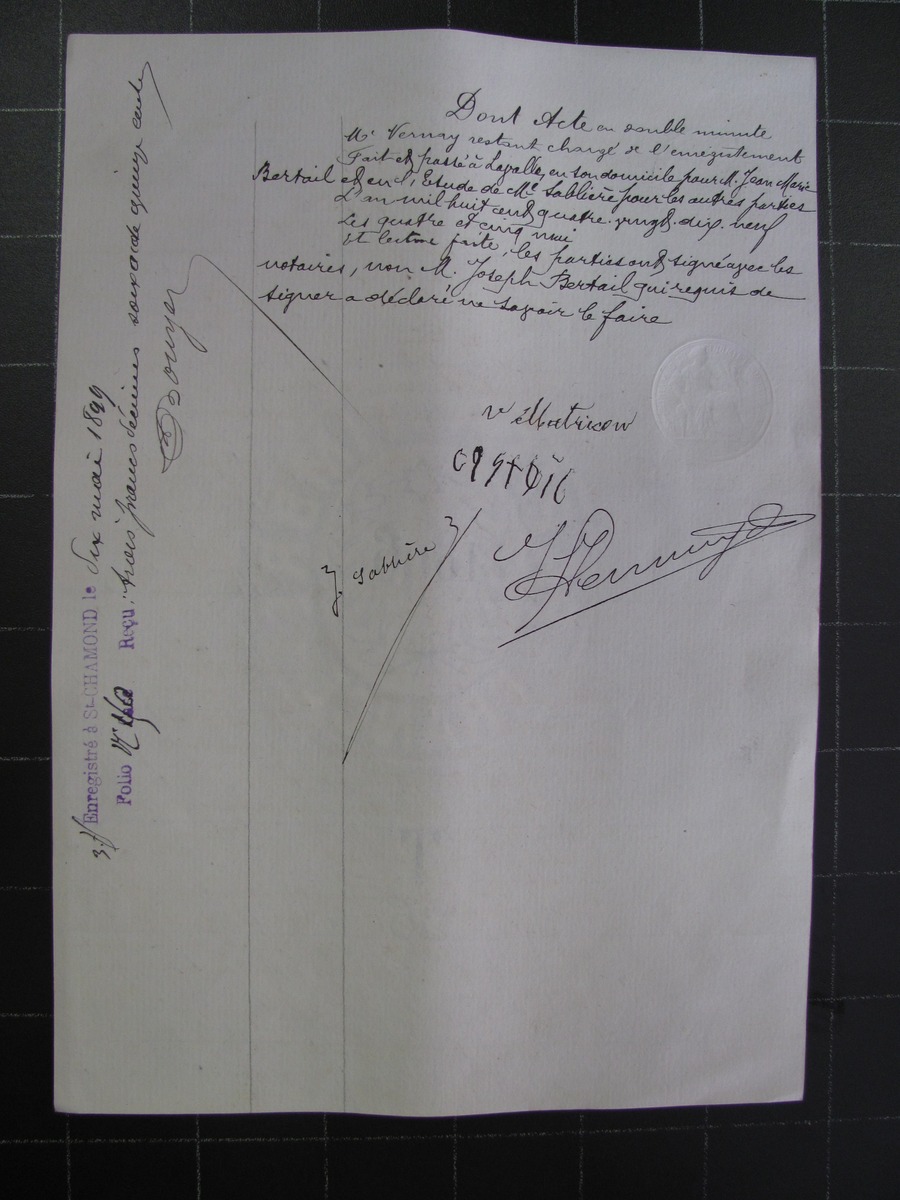 Dont Acte en double minute
Me Vernay restant chargé de l'enregistrement
Fait et passé à Lavalla, en son domicile pour M. Jean Marie
Bertail et en l'Etude de Me Sablière pour les autres parties
L'an mil huit cent quatre-vingt-dix-neuf
Les quatre et cinq mai
Et lecture faite, les parties ont signé avec les
notaires, non M. Joseph Bertail qui requis de
signer a déclaré ne savoir le faire
Ve Matricon
J. Sablière
Enregistré à St-CHAMOND le Six mai 1899
Folio Reçu: trois francs décimes soixante quinze cent